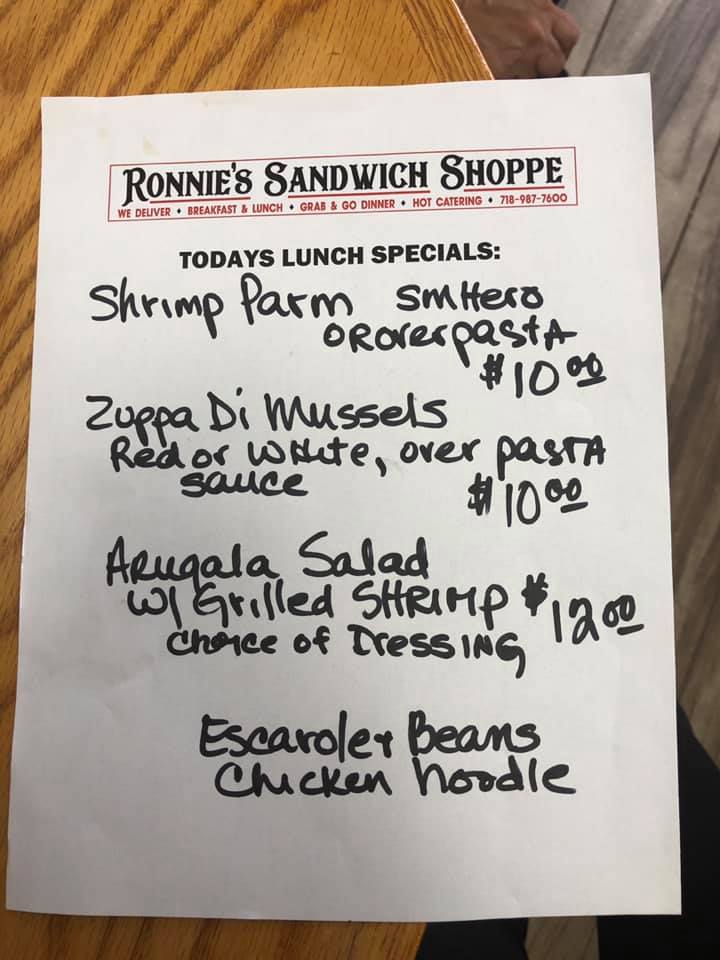 RONNIE'S SANDWICH SHOPPE
WE DELIVER • BREAKFAST & LUNCH • GRAB & GO DINNER • HOT CATERING • 718-987-7600
TODAYS LUNCH SPECIALS:
Shrimp Parm Sm Hero
OR over pastA
$10.00
Zuppa Di Mussels
Red or White, over pasTA
sauce
$10.00
Arugala Salad
W/ Grilled SHRIMP $12.00
choice of Dressing
Escarole + Beans
Chicken Noodle